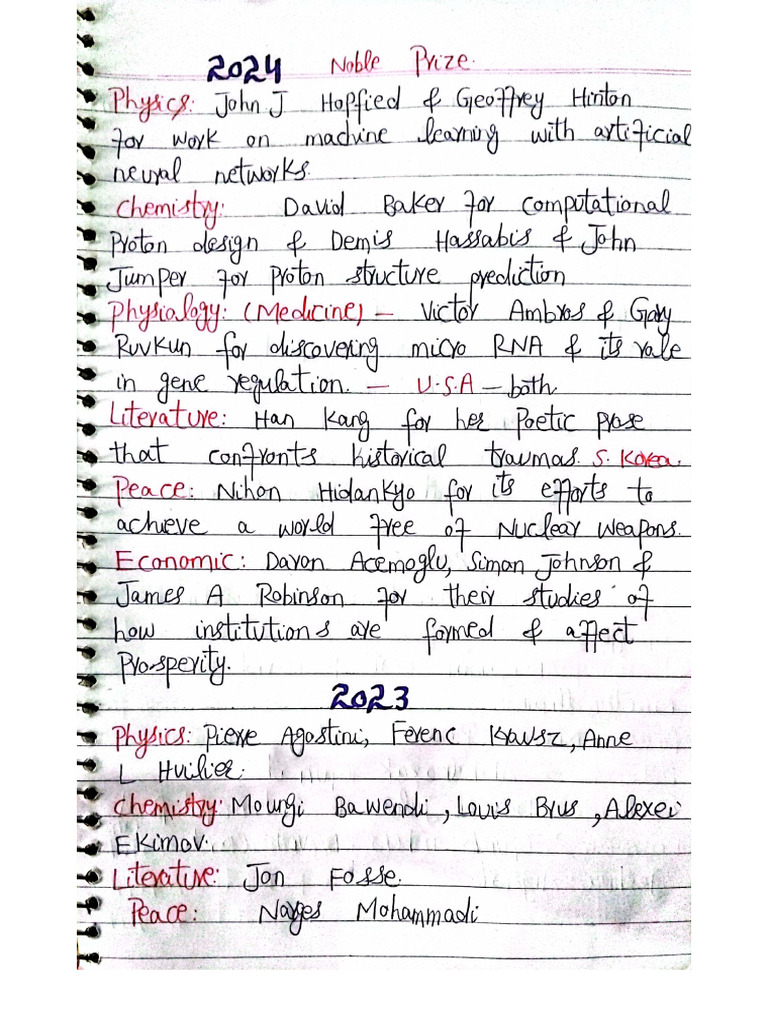 2024 Noble Prize.
Physics: John J Hopfied & Geoffrey Hinton
for work on machine learning with artificial
neural networks.
Chemistry: David Baker for computational
Proton design & Demis Hassabis & John
Jumper for proton structure prediction
Physialogy: (Medicine) - Victor Ambros & Gary
Ruvkun for discovering micro RNA & its role
in gene regulation. - U.S.A - both
Literature: Han Kang for her Poetic prose
that confronts historical traumas. S. Korea.
Peace: Nihon Hidankyo for its efforts to
achieve a world free of Nuclear weapons.
Economic: Daron Acemoglu, Simon Johnson &
James A Robinson for their studies of
how institutions are formed & affect
Prosperity.
2023
Physics: Pierre Agostini, Ferenc Krausz, Anne
L Huilier.
Chemistry: Moungi Bawendi, Louis Brus, Alexei
Ekimov.
Literature: Jon Fosse.
Peace: Narges Mohammadi